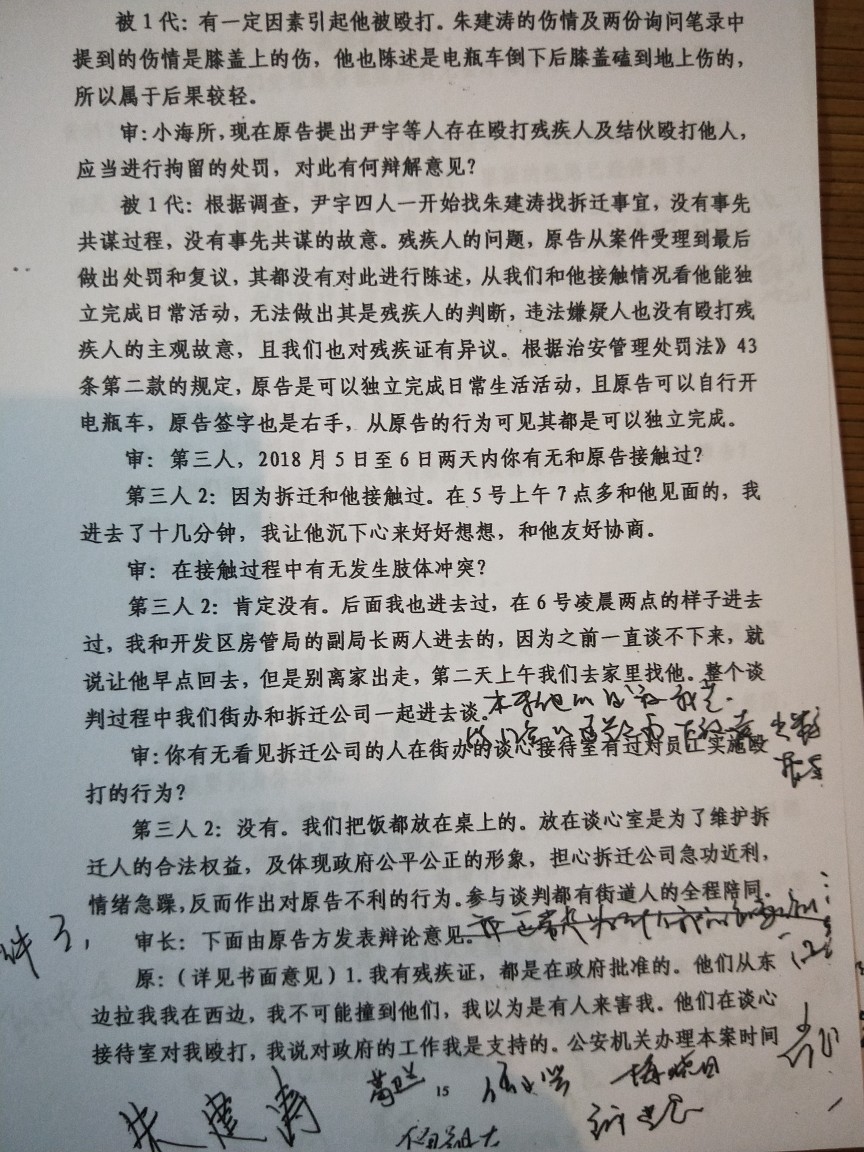 被1代：有一定因素引起他被殴打。朱建涛的伤情及两份询问笔录中
提到的伤情是膝盖上的伤，他也陈述是电瓶车倒下后膝盖磕到地上伤的，
所以属于后果较轻。
审：小海所，现在原告提出尹宇等人存在殴打残疾人及结伙殴打他人，
应当进行拘留的处罚，对此有何辩解意见？
被1代：根据调查，尹宇四人一开始找朱建涛找拆迁事宜，没有事先
共谋过程，没有事先共谋的故意。残疾人的问题，原告从案件受理到最后
做出处罚和复议，其都没有对此进行陈述，从我们和他接触情况看他能独
立完成日常活动，无法做出其是残疾人的判断，违法嫌疑人也没有殴打残
疾人的主观故意，且我们也对残疾证有异议。根据治安管理处罚法》43
条第二款的规定，原告是可以独立完成日常生活活动，且原告可以自行开
电瓶车，原告签字也是右手，从原告的行为可见其都是可以独立完成。
审：第三人，2018月5日至6日两天内你有无和原告接触过？
第三人2：因为拆迁和他接触过。在5号上午7点多和他见面的，我
进去了十几分钟，我让他沉下心来好好想想，和他友好协商。
审：在接触过程中有无发生肢体冲突？
第三人2：肯定没有。后面我也进去过，在6号凌晨两点的样子进去
过，我和开发区房管局的副局长两人进去的，因为之前一直谈不下来，就
说让他早点回去，但是别离家出走，第二天上午我们去家里找他。整个谈
判过程中我们街办和拆迁公司一起进去谈。
审：你有无看见拆迁公司的人在街办的谈心接待室有过对员工实施殴
打的行为？
第三人2：没有。我们把饭都放在桌上的。放在谈心室是为了维护拆
迁人的合法权益，及体现政府公平公正的形象，担心拆迁公司急功近利，
情绪急躁，反而作出对原告不利的行为。参与谈判都有街道人的全程陪同。
审长：下面由原告方发表辩论意见。
原：（详见书面意见）1.我有残疾证，都是在政府批准的。他们从东
边拉我我在西边，我不可能撞到他们，我以为是有人来害我。他们在谈心
接待室对我殴打，我说对政府的工作我是支持的。公安机关办理本案时间
15
朱建涛